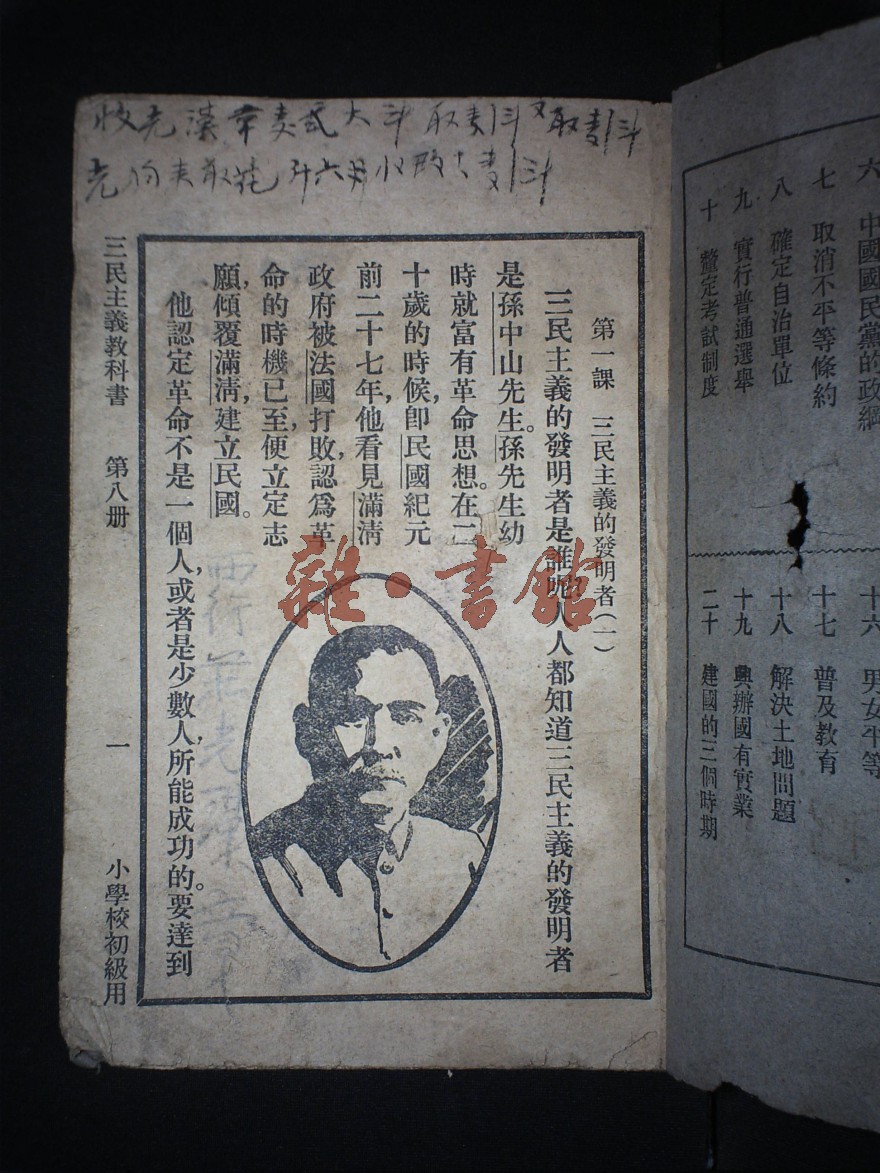 六 中國國民黨的政綱
七 取消不平等條約
八 確定自治單位
九 實行普通選舉
十 釐定考試制度
十六 男女平等
十七 普及教育
十八 解決土地問題
十九 興辦國有實業
二十 建國的三個時期
第一課 三民主義的發明者(一)
三民主義的發明者是誰呢人人都知道三民主義的發明者
是孫中山先生。孫先生幼
時就富有革命思想。在二
十歲的時候,卽民國紀元
前二十七年,他看見滿淸
政府被法國打敗,認爲革
命的時機已至,便立定志
願,傾覆滿淸,建立民國。
他認定革命不是一個人,或者是少數人,所能成功的。要達到
三民主義教科書 第八册 一 小學校初級用
雜·書館